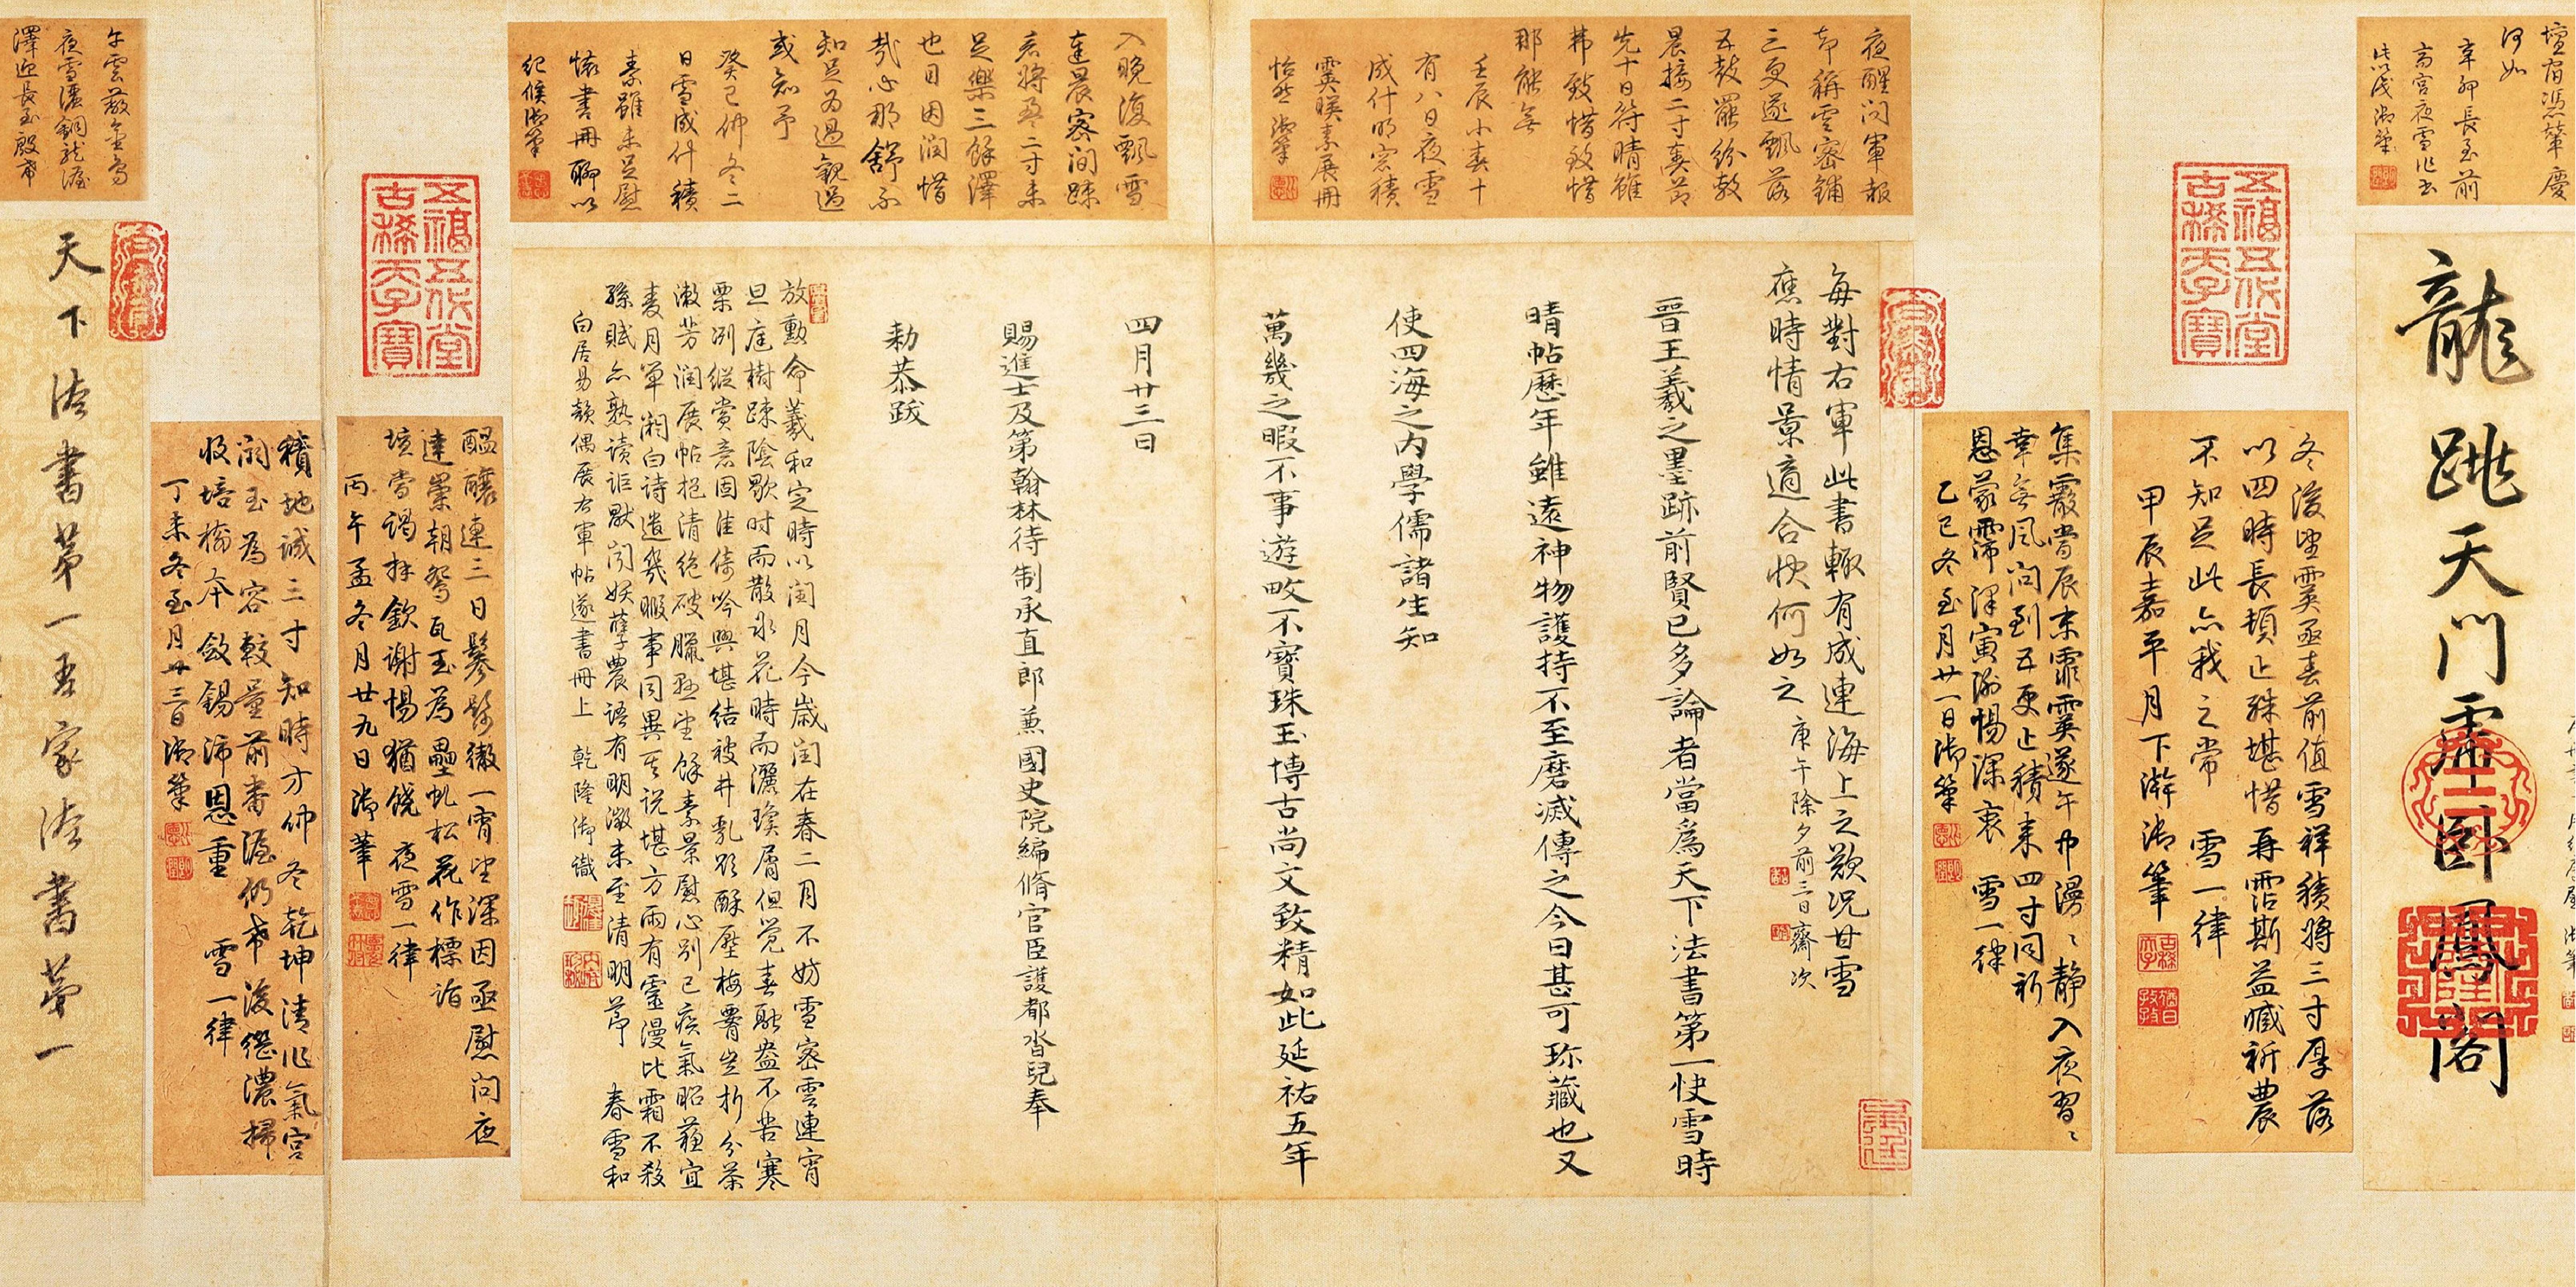 壇宿馮藥慶
何如
辛卯長至前
齋宮夜雪作書
此識御筆
龍跳天門虎卧鳳閣
冬後望雪亟喜前值雪祥積將三寸厚落
以四時長頓止殊堪惜再霑斯益臧祈農
不知足此亦我之常 雪一律
甲辰嘉平月下澣御筆
集霰當辰末霏霙遂午中漫〻静入夜習〻
幸無風問到五更止積来四寸同祈
恩蒙霈澤寅謝惕深衷 雪一律
乙巳冬至月廿一日御筆
五福五代堂
古稀天子寶
夜醒問軍報
却稱雲密鋪
三更遂飄落
五鼓罷紛敷
晨接二寸奏節
先十日符晴雖
弗致惜致惜
那能無
壬辰小春十
有八日夜雪
成什明窓積
霙映素展冊
怡然御筆
每對右軍此書輙有成連海上之歎況甘雪
應時情景適合快何如之 庚午除夕前三日齋次
晉王羲之墨跡前賢已多論者當爲天下法書第一快雪時
晴帖歷年雖遠神物護持不至磨滅傳之今日甚可珎藏也又
使四海之内學儒諸生知
萬幾之暇不事遊畋不寶珠玉博古尚文致精如此延祐五年
四月廿三日
賜進士及第翰林待制承直郎兼國史院編脩官臣護都沓兒奉
勅恭跋
入晚復飄雪
達晨密間踈
表將盈二寸未
足樂三餘澤
也目因潤惜
哉心那舒不
知足為過觀過
或知予
癸巳仲冬二
日雪成什積
素雖未足慰
懷書冊聊以
紀候御筆
放勳命羲和定時以閏月今歲閏在春二月不妨雪密雲連宵
旦庭樹踈陰歇时而散氷花時而灑瓊屑但覺春融盎不苦寒
栗冽縱賞意固佳倚吟興堪結被井乳疑酥壓梅霽坐折分茶
漱芳潤展帖挹清絶破臘頻望餘素景慰心别已疾氣昭蘓宜
麦月單湘白诗遣幾暇事同異其说堪方雨有靈漫比霜不殺
孫賦亦熟读詎默闵妖孽農语有明徴未至清明節 春雪和
白居易韻偶展右軍帖遂書冊上 乾隆御識
五福五代堂
古稀天子寶
醖釀連三日鬖髿徹一宵望深因亟慰問夜
達崇朝鴛瓦玉為壘虬松花作標詣
壇當谒拜欽謝惕猶饶 夜雪一律
丙午孟冬月廿九日御筆
積地诚三寸知時方仲冬乾坤清作氣宮
闕玉為容較量前番渥仍希後継濃掃
收培樹本斂錫沛恩重 雪一律
丁未冬至月廿三日御筆
午雲蔽金烏
夜雪濃銅龍渥
澤迎長至殷希
天下法書第一吾家法書第一